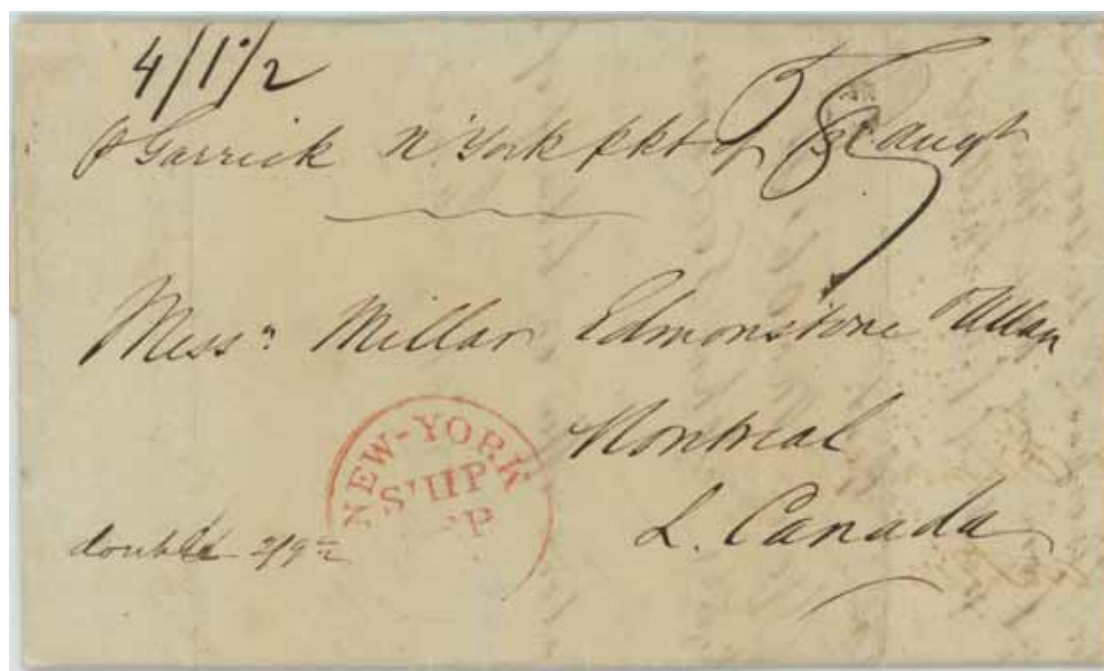 4/1½
P Garrick N. York pkt of Augt
Messrs Millar Edmonstone & Allan
Montreal
NEW-YORK
SHIP
L. Canada
double 2/9½